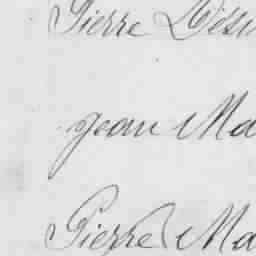 Pierre Dési
Jean Ma
Pierre Ma